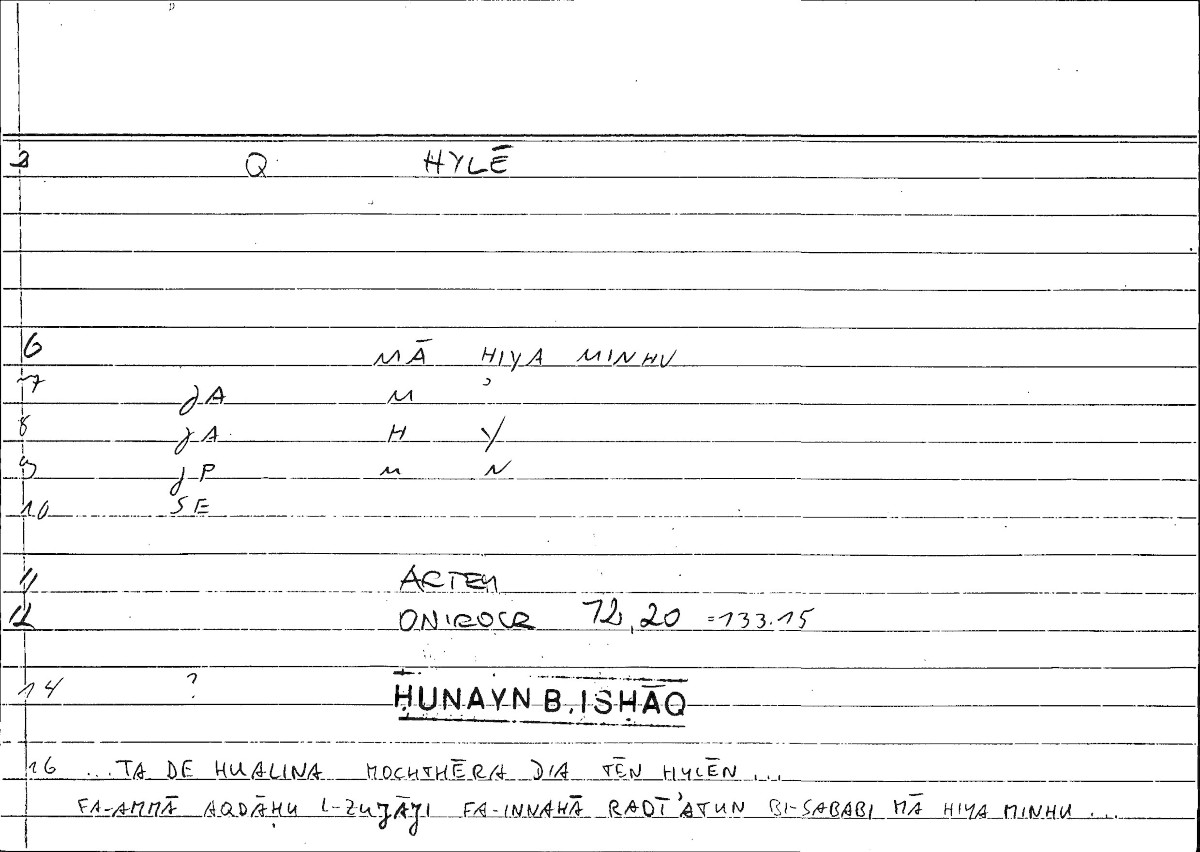 2 Q HYLĒ
6 MĀ HIYA MINHU
7 JA M ʾ
8 JA H Y
9 JP M N
10 SE
11 ARTEM
12 ONIROCR 72,20 =133.15
14 ? ḤUNAYN B. ISḤĀQ
16 ...TA DE HUALINA MOCHTHĒRA DIA TĒN HYLĒN...
FA-AMMĀ AQDĀḤU L-ZUJĀJI FA-INNAHĀ RADĪʾATUN BI-SABABI MĀ HIYA MINHU...